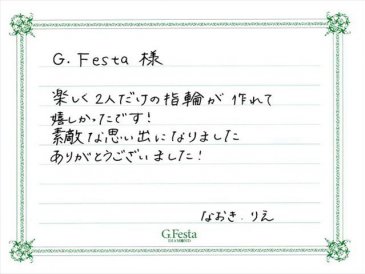 G. Festa 様
楽しく2人だけの指輪が作れて
嬉しかったです!
素敵な思い出になりました
ありがとうございました!
なおき.りえ
G.Festa
DIAMOND